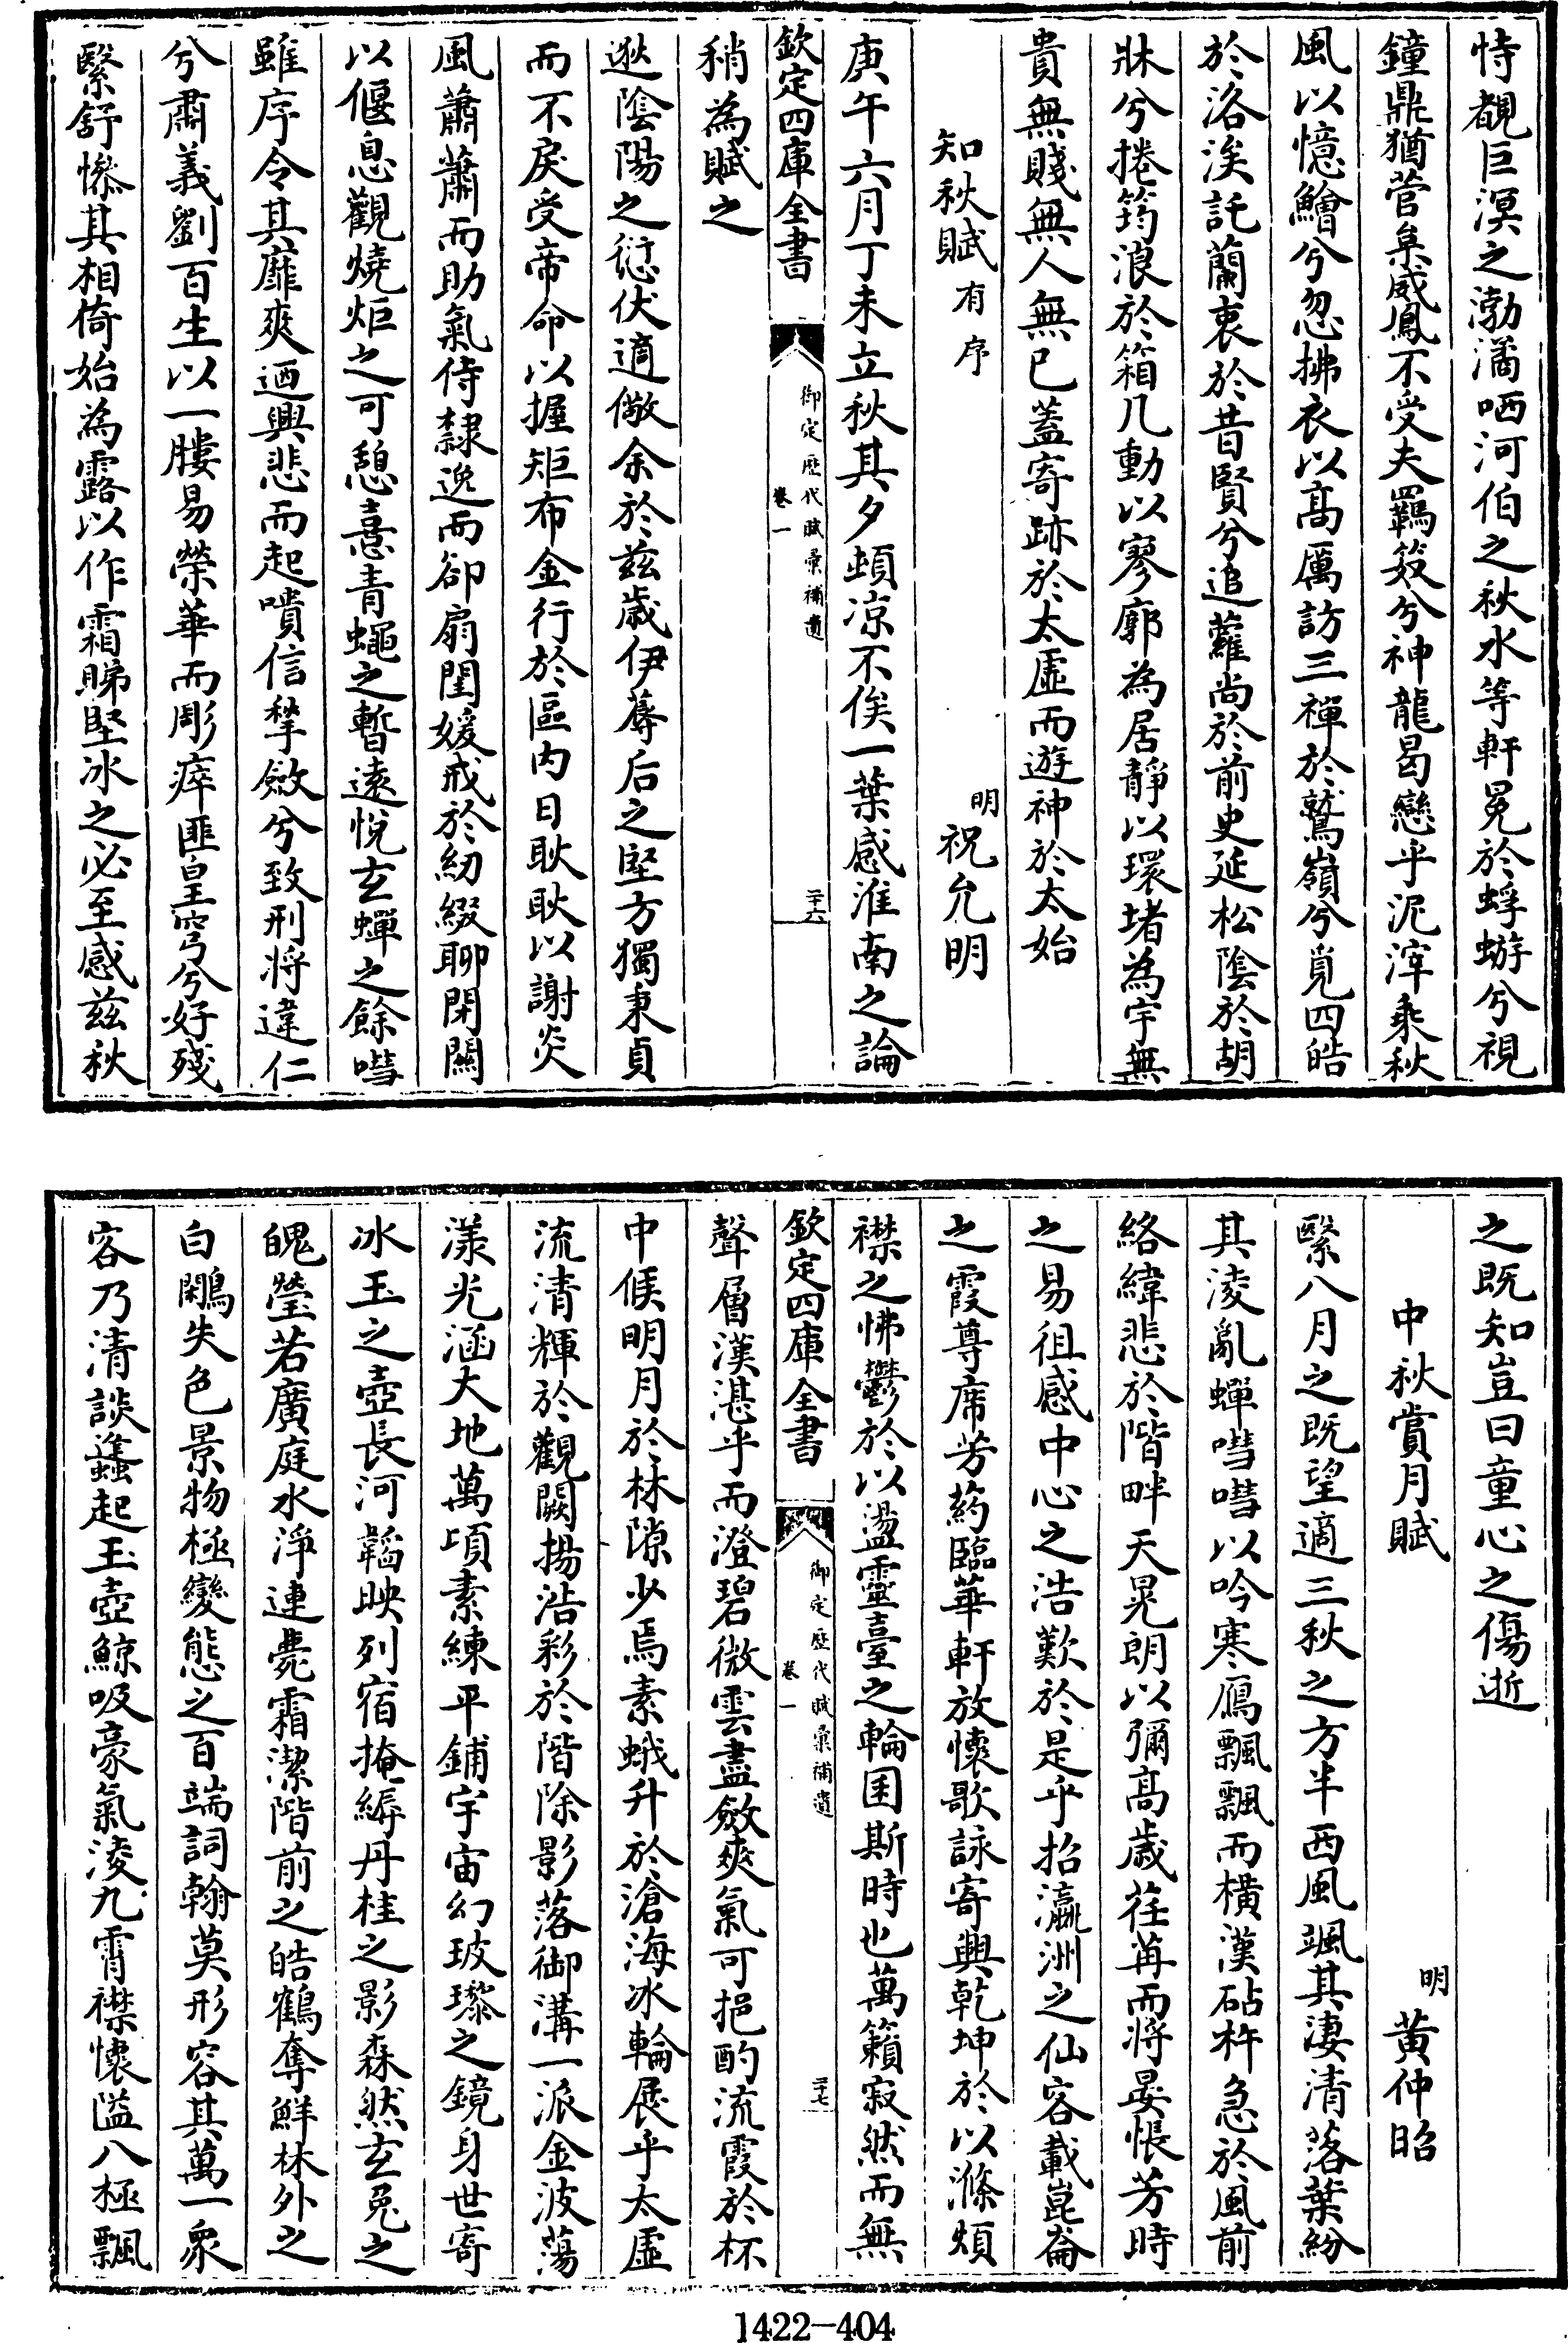 恃覩巨溟之渤潏哂河伯之秋水等軒冕於蜉蝣兮視
鐘鼎猶菅枲威鳳不受夫羈笯兮神龍曷戀乎泥滓乘秋
風以憶鱠兮忽拂衣以高厲訪三禪於鷲嶺兮覓四皓
於洛涘託蘭衷於昔賢兮追蘿尚於前史延松陰於胡
牀兮捲筠浪於箱几動以寥廓為居靜以環堵為宇無
貴無賤無人無已蓋寄跡於太虛而遊神於太始
知秋賦有序 明祝允明
庚午六月丁未立秋其夕頓凉不俟一葉感淮南之論
欽定四庫全書 御定歷代賦彙補遺 卷一 二十六
稍為賦之
逖陰陽之愆伏適儆余於茲歲伊蓐后之堅方獨秉貞
而不戾受帝命以握矩布金行於區内日耿耿以謝炎
風蕭蕭而助氣侍隸逸而卻扇閨媛戒於紉綴聊閉關
以偃息觀燒炬之可憩憙青蠅之暫遠悅玄蟬之餘嘒
雖序令其靡爽迺興悲而起嘳信揫斂兮致刑將違仁
兮肅義劉百生以一膢易榮華而彫瘁匪皇穹兮好殘
繄舒慘其相倚始為露以作霜睇堅冰之必至感茲秋
之既知豈曰童心之傷逝
中秋賞月賦 明黄仲昭
繄八月之既望適三秋之方半西風颯其淒清落葉紛
其淩亂蟬嘒嘒以吟寒鴈飄飄而橫漢砧杵急於風前
絡緯悲於階畔天晃朗以彌高歲荏苒而將晏悵芳時
之易徂感中心之浩歎於是乎招瀛洲之仙客載崑崙
之霞尊席芳葯臨華軒放懷歌詠寄興乾坤於以滌煩
襟之怫鬱於以盪靈臺之輪囷斯時也萬籟寂然而無
欽定四庫全書 御定歷代賦彙補遺 卷一 二十七
聲層漢湛乎而澄碧微雲盡斂爽氣可挹酌流霞於杯
中候明月於林隙少焉素蛾升於滄海冰輪展乎太虛
流清輝於觀闕揚浩彩於階除影落御溝一派金波蕩
漾光涵大地萬頃素練平鋪宇宙幻玻瓈之鏡身世寄
冰玉之壺長河韜映列宿掩縟丹桂之影森然玄兔之
魄瑩若廣庭水淨連甍霜潔階前之皓鶴奪鮮林外之
白鷴失色景物極變態之百端詞翰莫形容其萬一衆
客乃清談蠭起玉壺鯨吸豪氣淩九霄襟懷隘八極飄
1422—404